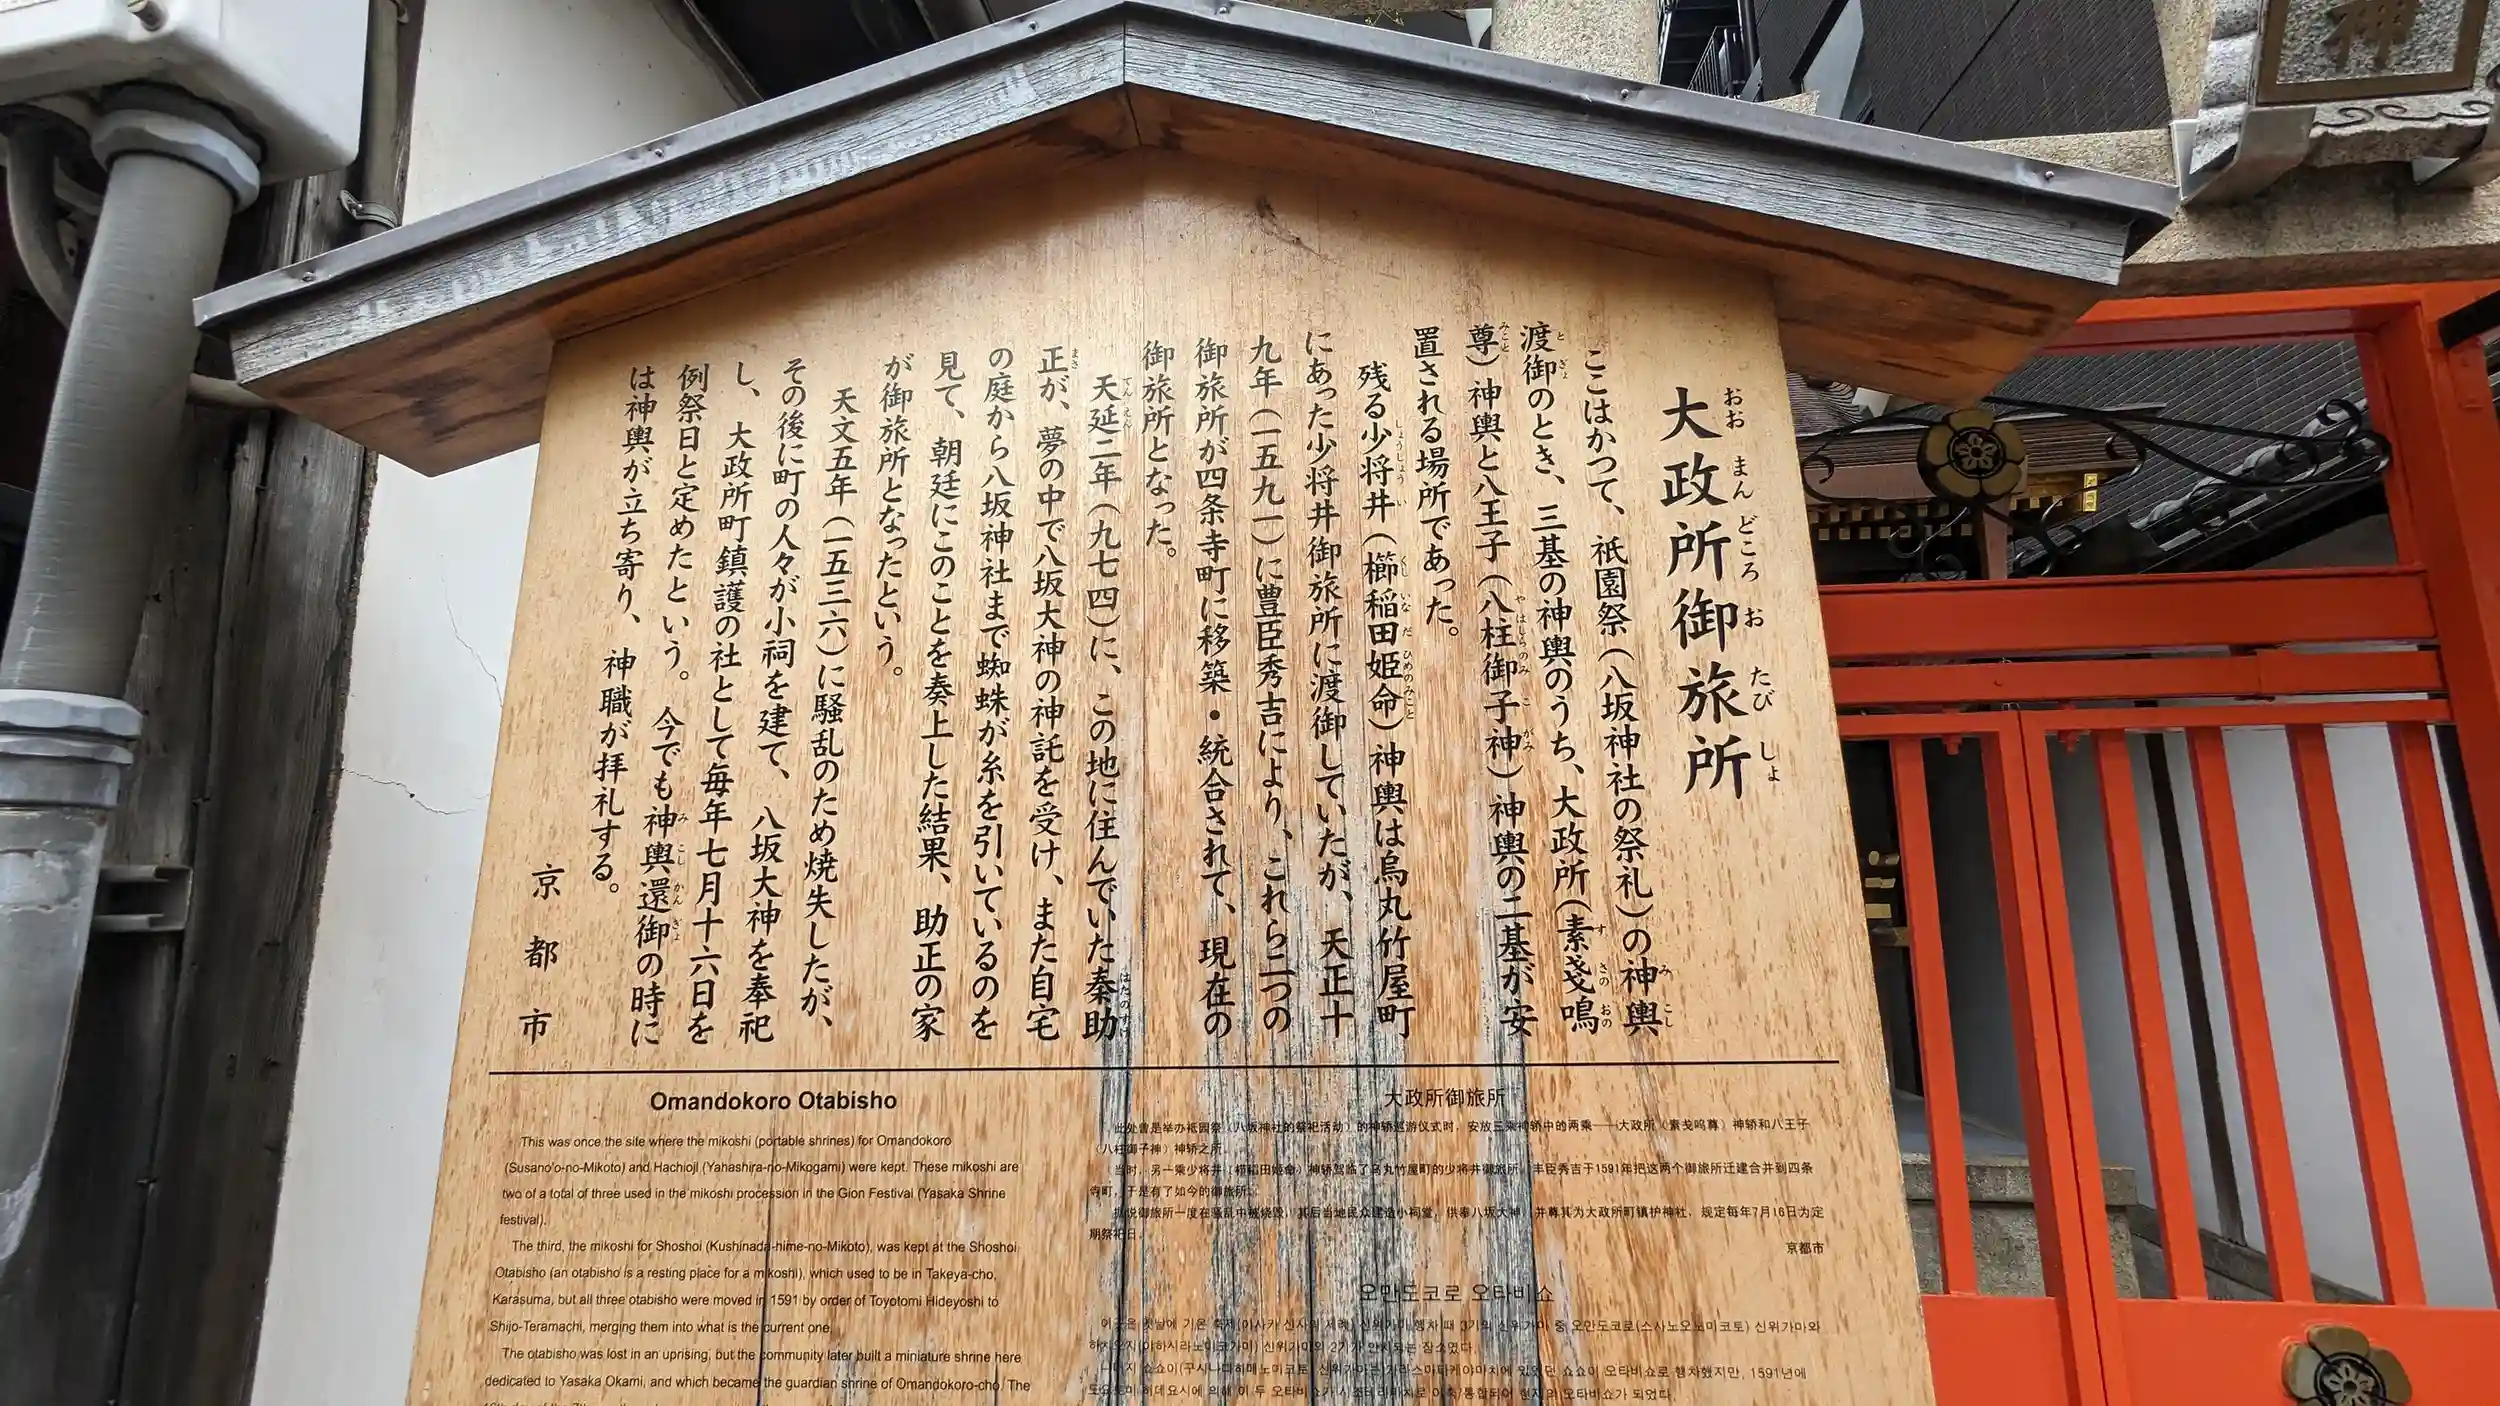 神
大政所御旅所
おおまんどころおたびしょ
ここはかつて、祇園祭（八坂神社の祭礼）の神輿
渡御のとき、三基の神輿のうち、大政所（素戔嗚
尊）神輿と八王子（八柱御子神）神輿の二基が安
置される場所であった。
残る少将井（櫛稲田姫命）神輿は烏丸竹屋町
にあった少将井御旅所に渡御していたが、天正十
九年（一五九一）に豊臣秀吉により、これら二つの
御旅所が四条寺町に移築・統合されて、現在の
御旅所となった。
天延二年（九七四）に、この地に住んでいた秦助
正が、夢の中で八坂大神の神託を受け、また自宅
の庭から八坂神社まで蜘蛛が糸を引いているのを
見て、朝廷にこのことを奏上した結果、助正の家
が御旅所となったという。
天文五年（一五三六）に騒乱のため焼失したが、
その後に町の人々が小祠を建て、八坂大神を奉祀
し、大政所町鎮護の社として毎年七月十六日を
例祭日と定めたという。今でも神輿還御の時に
は神輿が立ち寄り、神職が拝礼する。
京都市
Omandokoro Otabisho
This was once the site where the mikoshi (portable shrines) for Omandokoro
(Susano'o-no-Mikoto) and Hachioji (Yahashira-no-Mikogami) were kept. These mikoshi are
two of a total of three used in the mikoshi procession in the Gion Festival (Yasaka Shrine
festival).
The third, the mikoshi for Shoshoi (Kushinada-hime-no-Mikoto), was kept at the Shoshoi
Otabisho (an otabisho is a resting place for a mikoshi), which used to be in Takeya-cho,
Karasuma, but all three otabisho were moved in 1591 by order of Toyotomi Hideyoshi to
Shijo-Teramachi, merging them into what is the current one.
The otabisho was lost in an uprising, but the community later built a miniature shrine here
dedicated to Yasaka Okami, and which became the guardian shrine of Omandokoro-cho. The
大政所御旅所
此处曾是举办祇园祭（八坂神社的祭祀活动）的神轿巡游仪式时，安放三乘神轿中的两乘——大政所（素戈鸣尊）神轿和八王子
（八柱御子神）神轿之所。
当时，另一乘少将井（稻田姬命）神轿驾临了乌丸竹屋町的少将井御旅所。丰臣秀吉于1591年把这两个御旅所迁建合并到四条
寺町，于是有了如今的御旅所。
据说御旅所一度在骚乱中被烧毁，其后当地民众建造小祠堂，供奉八坂大神，并尊其为大政所町镇护神社，规定每年7月16日为定
期祭祀日。
京都市
오만도코로 오타비쇼